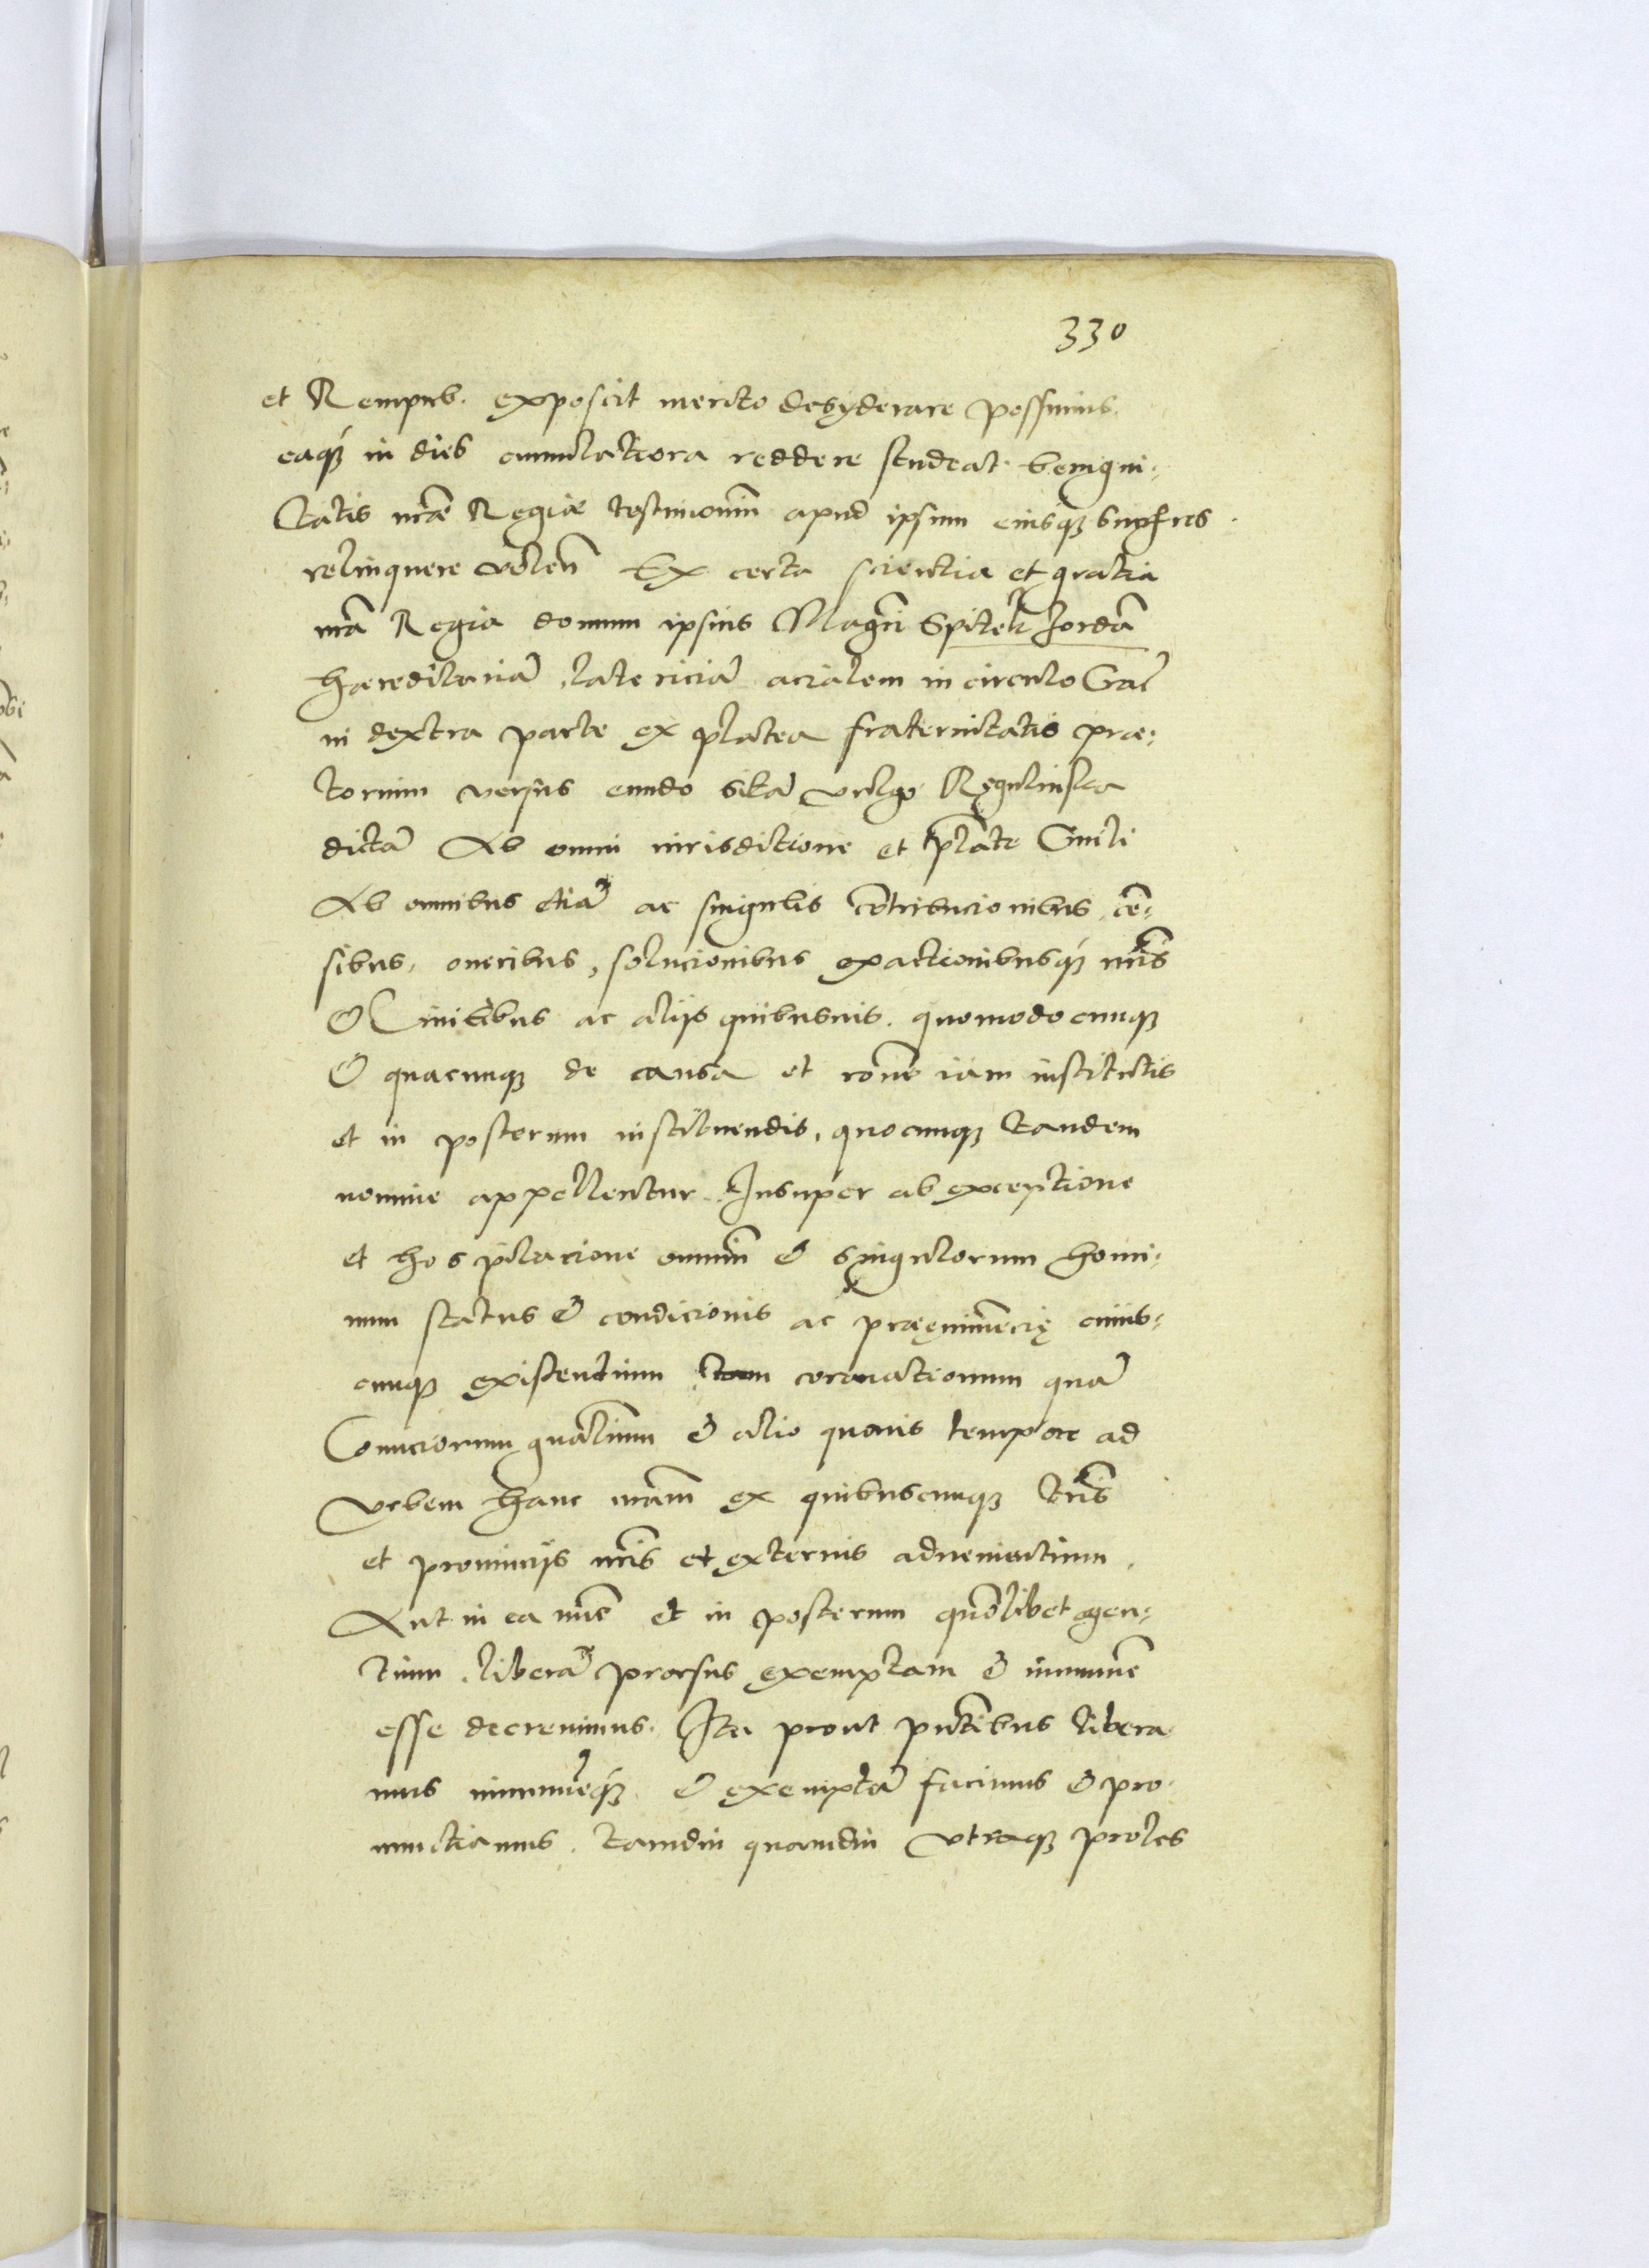 330
et Rempub. exposcit merito desyderare possimus.
eaq; in dies cumulatiora reddere studeat. benigni-
tatis nr̃ae Regiae testimoniũ apud ipsum eiusq;
relinquere volen̄ Ex certa scientia et gratia
nr̃a Regia domum ipsius Magn̄i Spitek Jordã
haereditariã, latericiã acialem in circulo Crac̄
in dextra parte ex platea fraternitatis prae-
torium versus eundo sitã vulgo Regulinska
dictã Ab omni iurisditione et p̃tãte Ciuili
Ab omnibus etiã ac singulis cõtribucionibus, cẽ-
sibus, oneribus, solucionibus exactionibusq; nr̃is
& Ciuitibus ac alijs quibusuis. quomodocunq;
& quacunq; de causa et rõne iam institutis
et in posterum instituendis, quocunq; tandem
nomine appellentur. Insuper ab exceptione
et hospitacione omniũ & singulorum homi-
num status & condicionis ac praeeminẽcię cuius-
cunq; existentium tam coronationum quã
Conuciorum gñalium & alio quouis tempore ad
vrbem hanc nr̃am ex quibuscunq; tr̃is
et prouincijs nr̃is et externis aduenientium.
Aut in ea nũc et in posterum quõlibet agen-
tium, liberã prorsus exemptam & immunẽ
esse decreuimus. Ita prout pñtibus libera
mus immunẽq; & exemptã facimus & pro-
nunctiamus, tamdiu quamdiu vtraq; proles